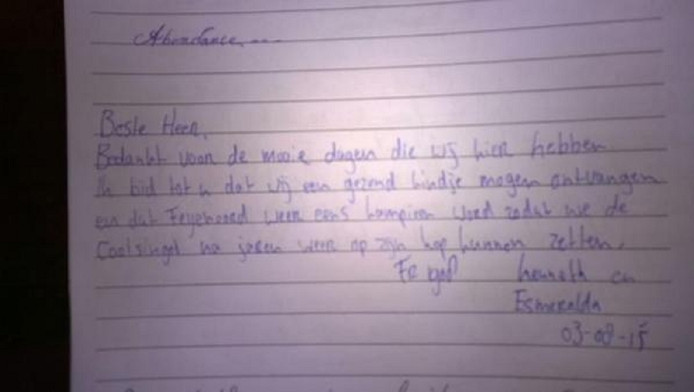 Abondance....
Beste Heer,
Bedankt voor de mooie dagen die wij hier hebben
Ik bid tot u dat wij een gezond kindje mogen ontvangen
en dat Feyenoord weer eens kampioen word zodat we de
Coolsingel na jaren weer op zijn kop kunnen zetten.
kenneth en
Esmeralda
03-08-15